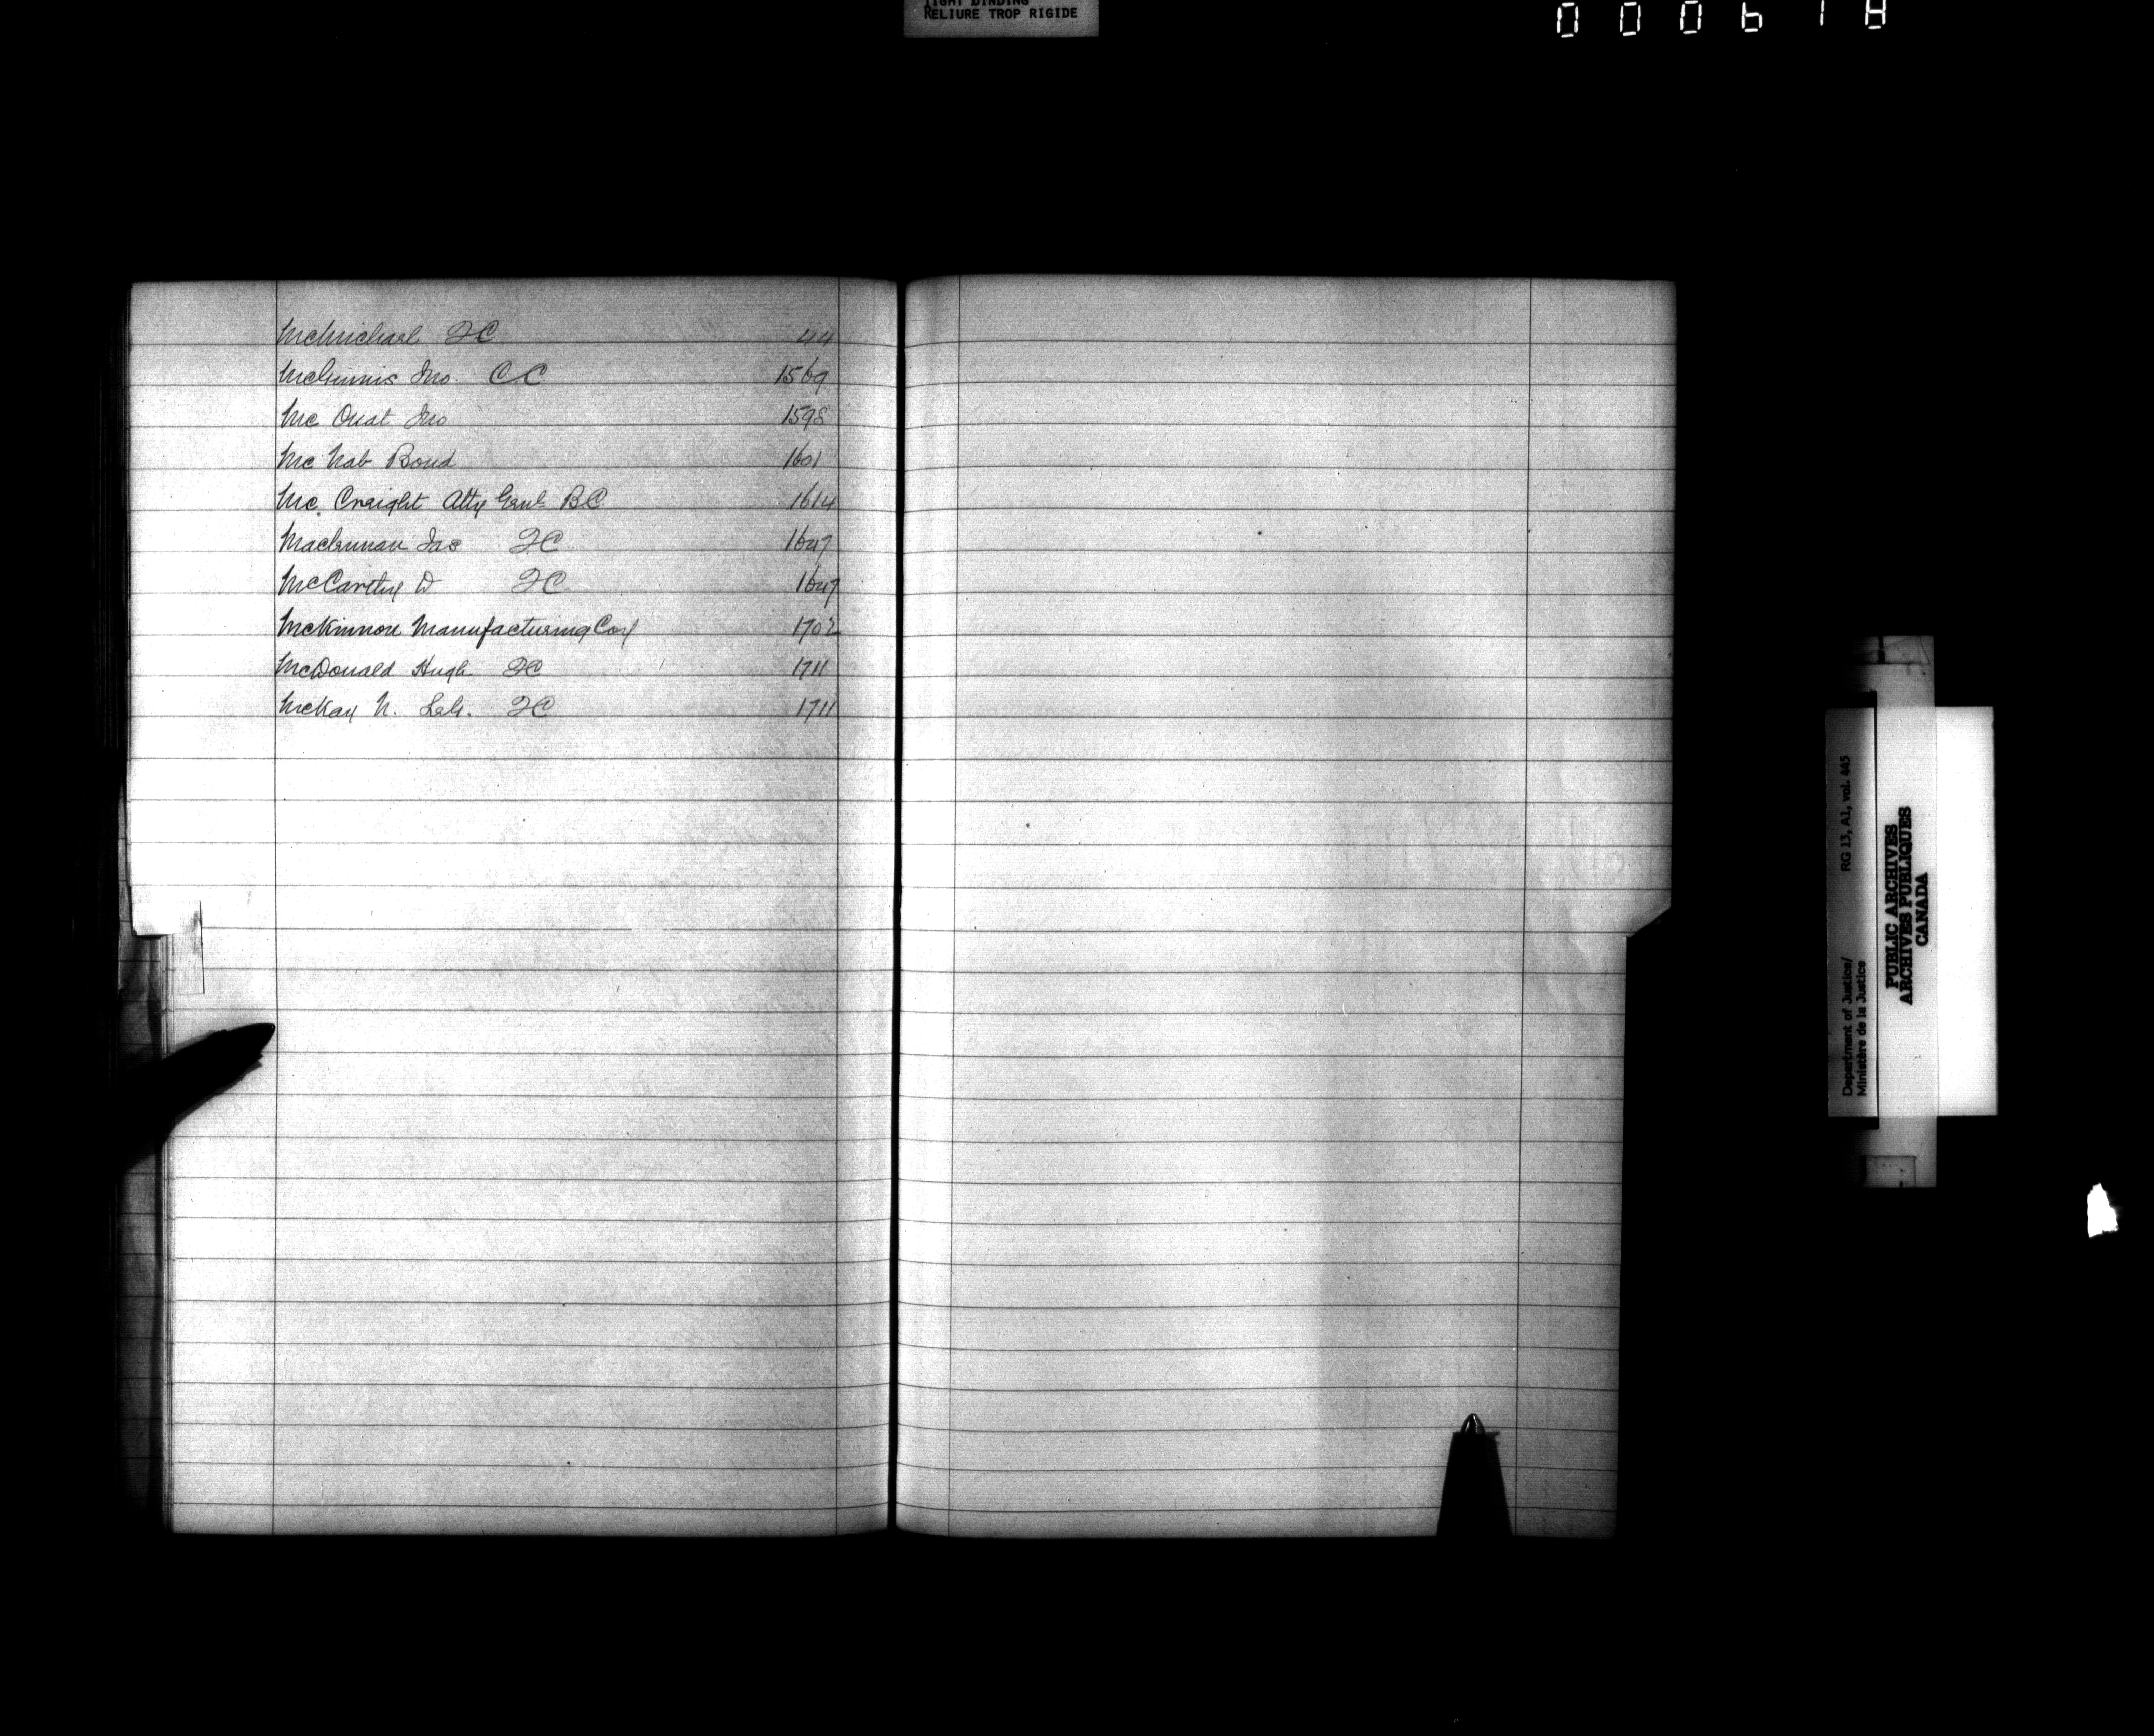 TIGHT BINDING
RELIURE TROP RIGIDE
000618
McMichael QC 44
McGinnis Jno. CC 1569
Mc Ouat Jno 1598
Mc Nab Bond 1601
Mc. Creight Atty Genl BC 1614
Maclennan Jas QC 1647
McCarthy D QC 1647
McKinnon Manufacturing Coy 1702
McDonald Hugh QC 1711
McKay N. QC 1711
Department of Justice/ RG 13, A1, vol. 445
Ministère de la Justice
PUBLIC ARCHIVES
ARCHIVES PUBLIQUES
CANADA